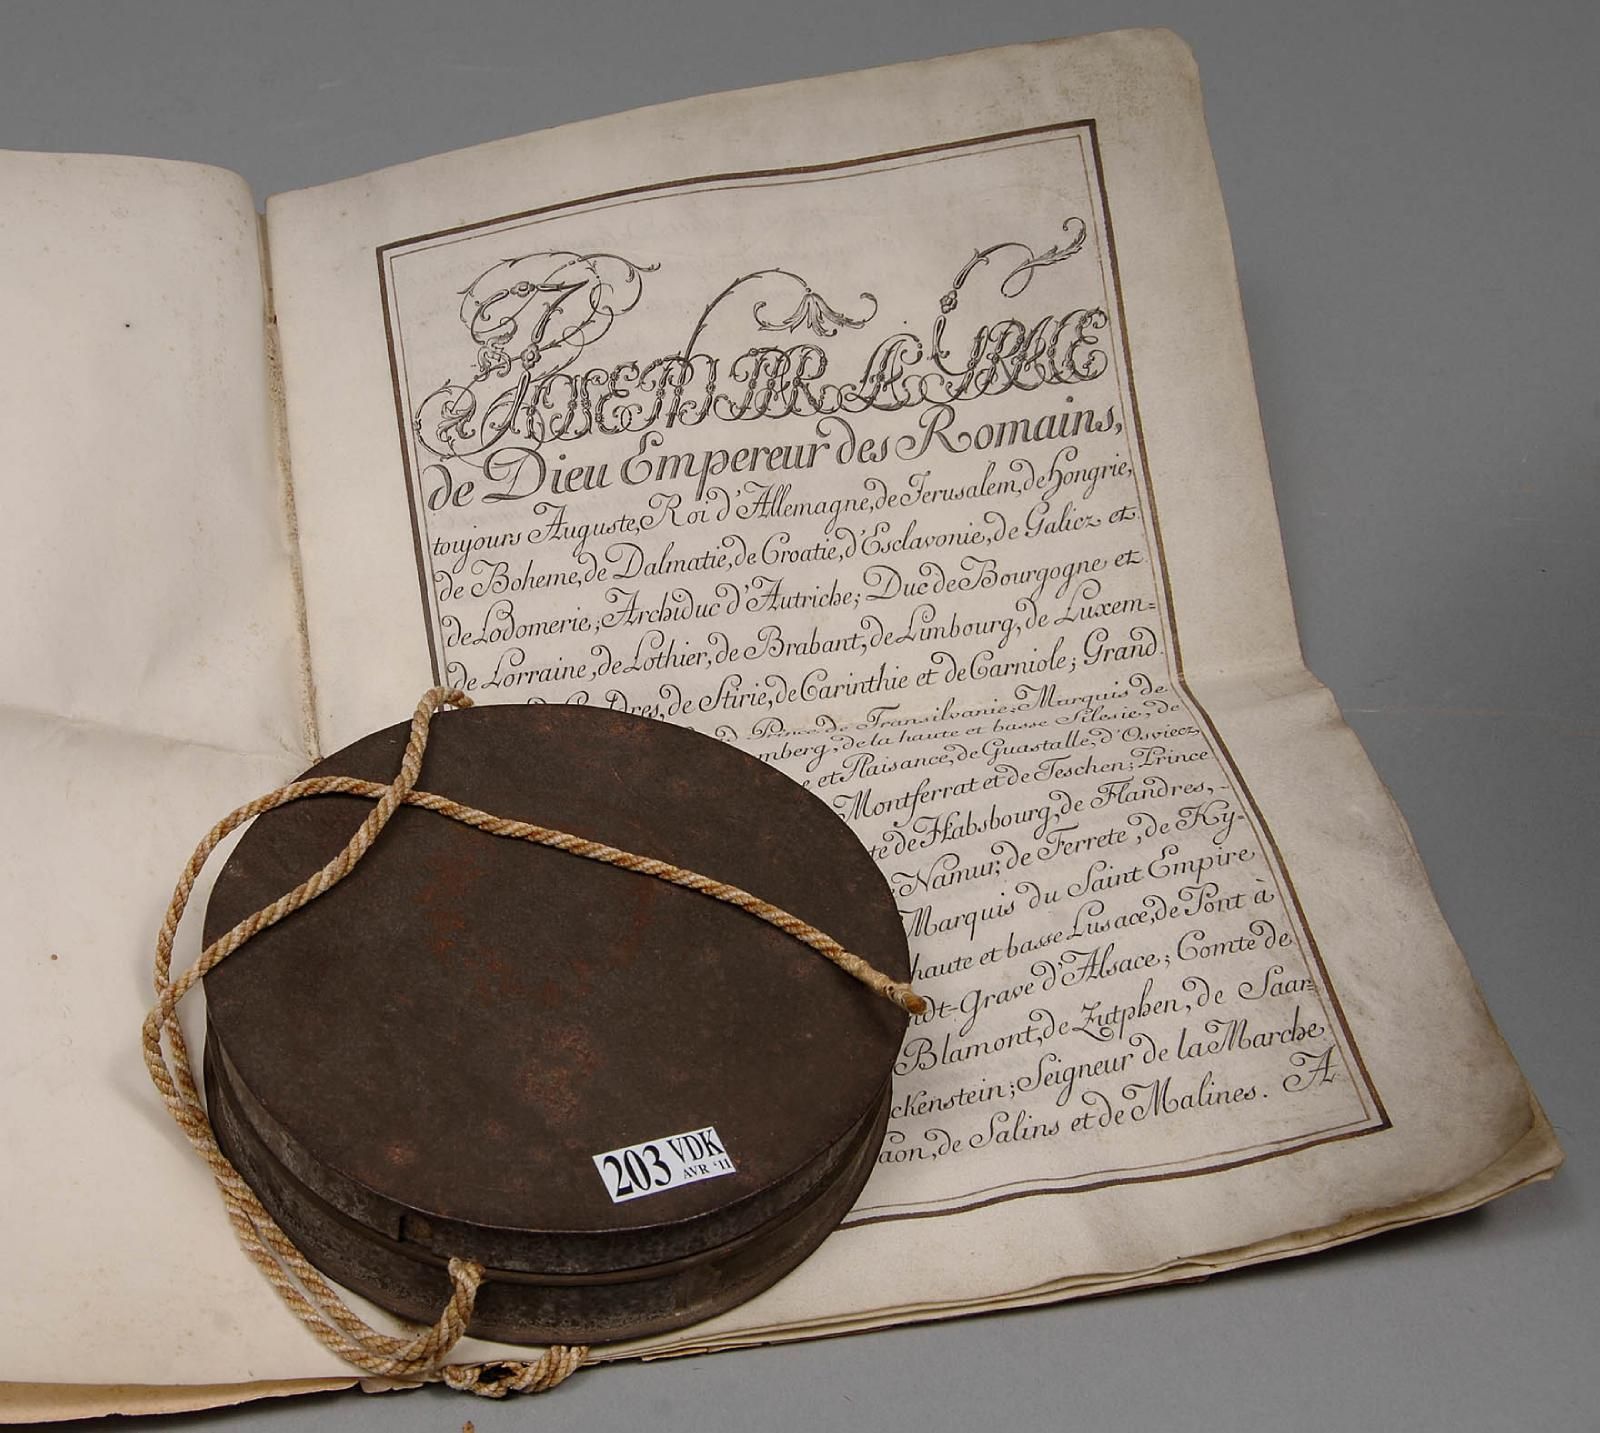 JOSEPH PAR LA GRACE
de Dieu Empereur des Romains,
toujours Auguste, Roi d'Allemagne, de Jerusalem, de Hongrie,
de Boheme, de Dalmatie, de Croatie, d'Esclavonie, de Galicz et
de Lodomerie; Archiduc d'Autriche; Duc de Bourgogne et
de Lorraine, de Lothier, de Brabant, de Limbourg, de Luxem=
de Stirie, de Carinthie et de Carniole; Grand
Prince de Transilvanie; Marquis de
mberg, de la haute et basse Silesie, de
e et Plaisance, de Guastalle, d'Osviecz
Montferrat et de Teschen; Prince
te de Habsbourg, de Flandres,
Namur, de Ferrete, de Ky-
Marquis du Saint Empire
haute et basse Lusace, de Pont à
ndt-Grave d'Alsace; Comte de
Blamont, de Zutphen, de Saar=
ckenstein; Seigneur de la Marche
aon, de Salins et de Malines. A
203 VDK
AVR '11